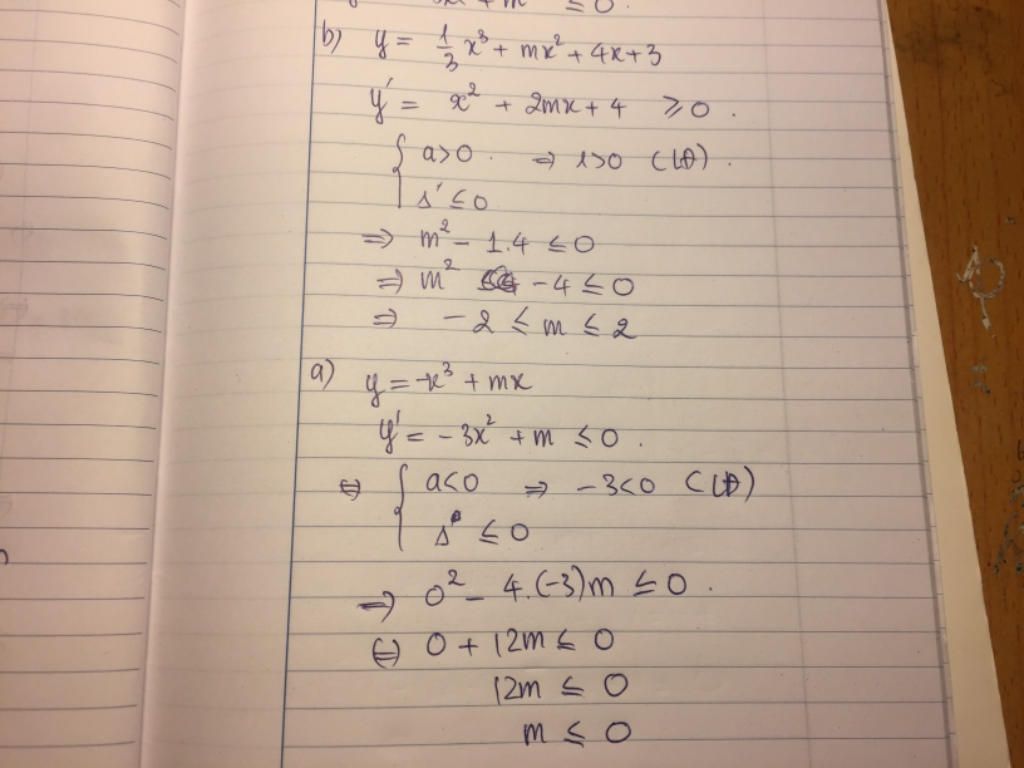 ≤ 0.
b) y = 1/3 x³ + mx² + 4x + 3
y' = x² + 2mx + 4 ≥ 0.
{ a > 0. ⇒ 1 > 0 (LĐ).
Δ' ≤ 0
⇒ m² - 1.4 ≤ 0
⇒ m² - 4 ≤ 0
⇒ -2 ≤ m ≤ 2
a) y = -x³ + mx
y' = -3x² + m ≤ 0.
⇔ { a < 0 ⇒ -3 < 0 (LĐ)
Δ ≤ 0
⇒ 0² - 4.(-3)m ≤ 0.
⇔ 0 + 12m ≤ 0
12m ≤ 0
m ≤ 0